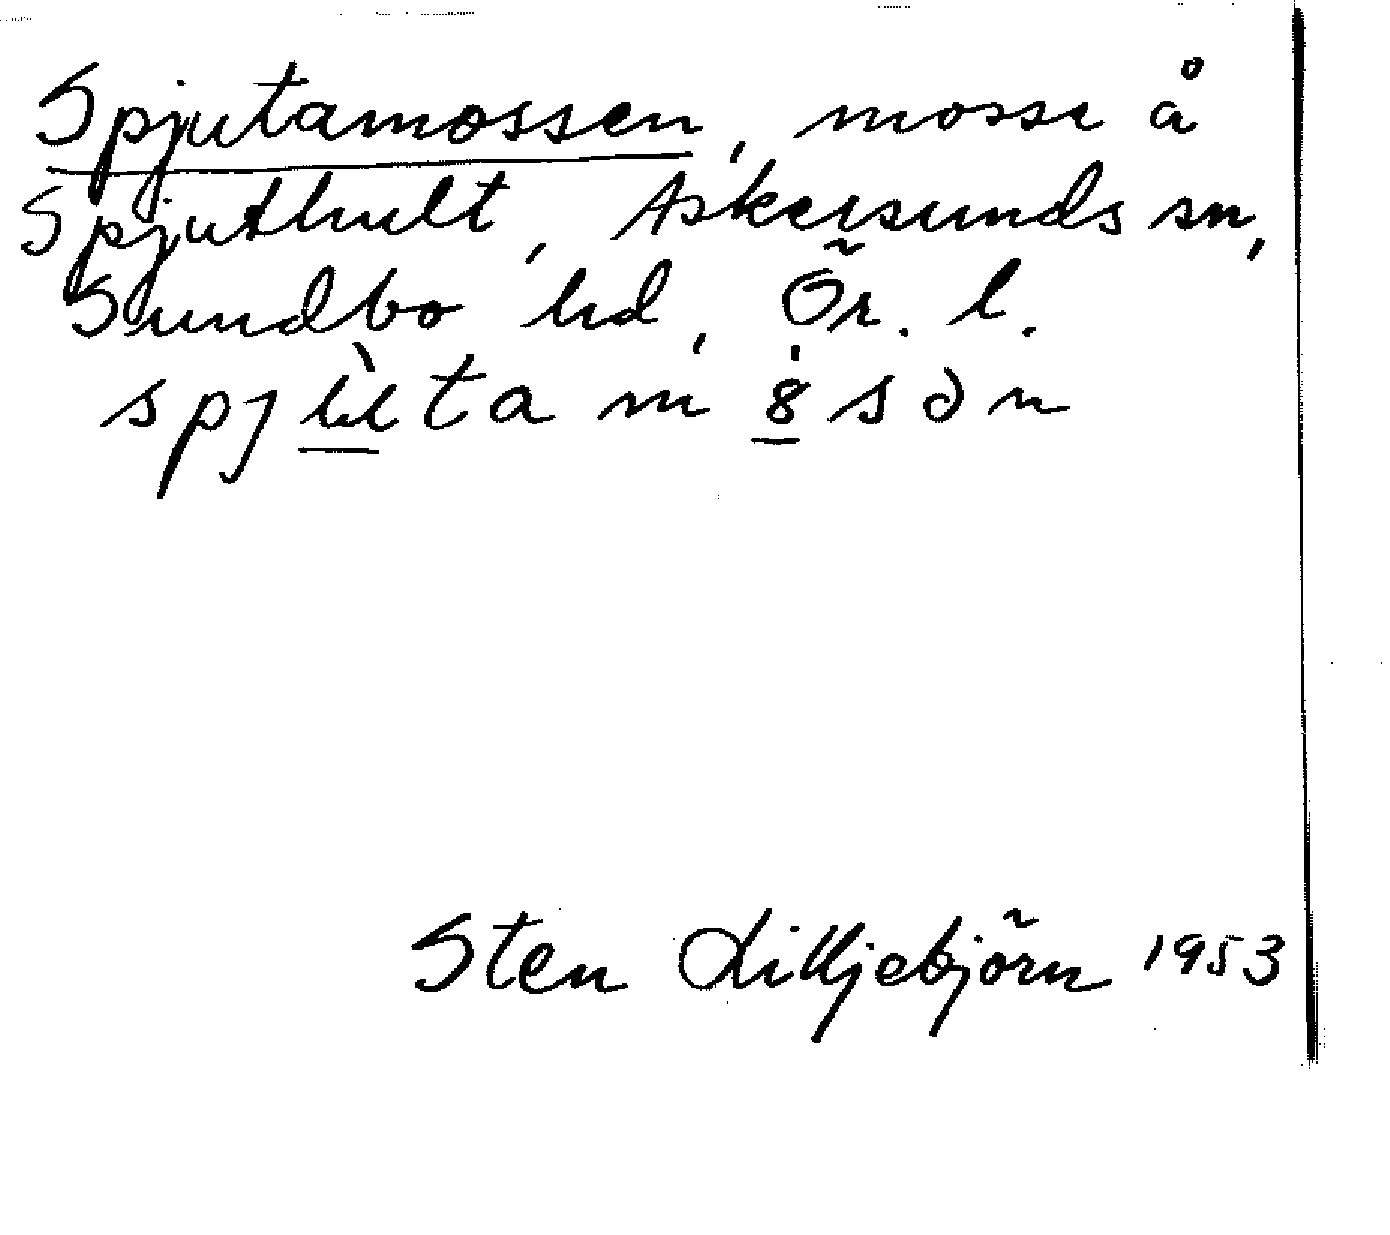 Spjutamossen, mosse å
Spjuthult, Askersunds sn,
Sundbo hd, Ör. l.
spjùtam8sən
Sten Lilljebjörn 1953